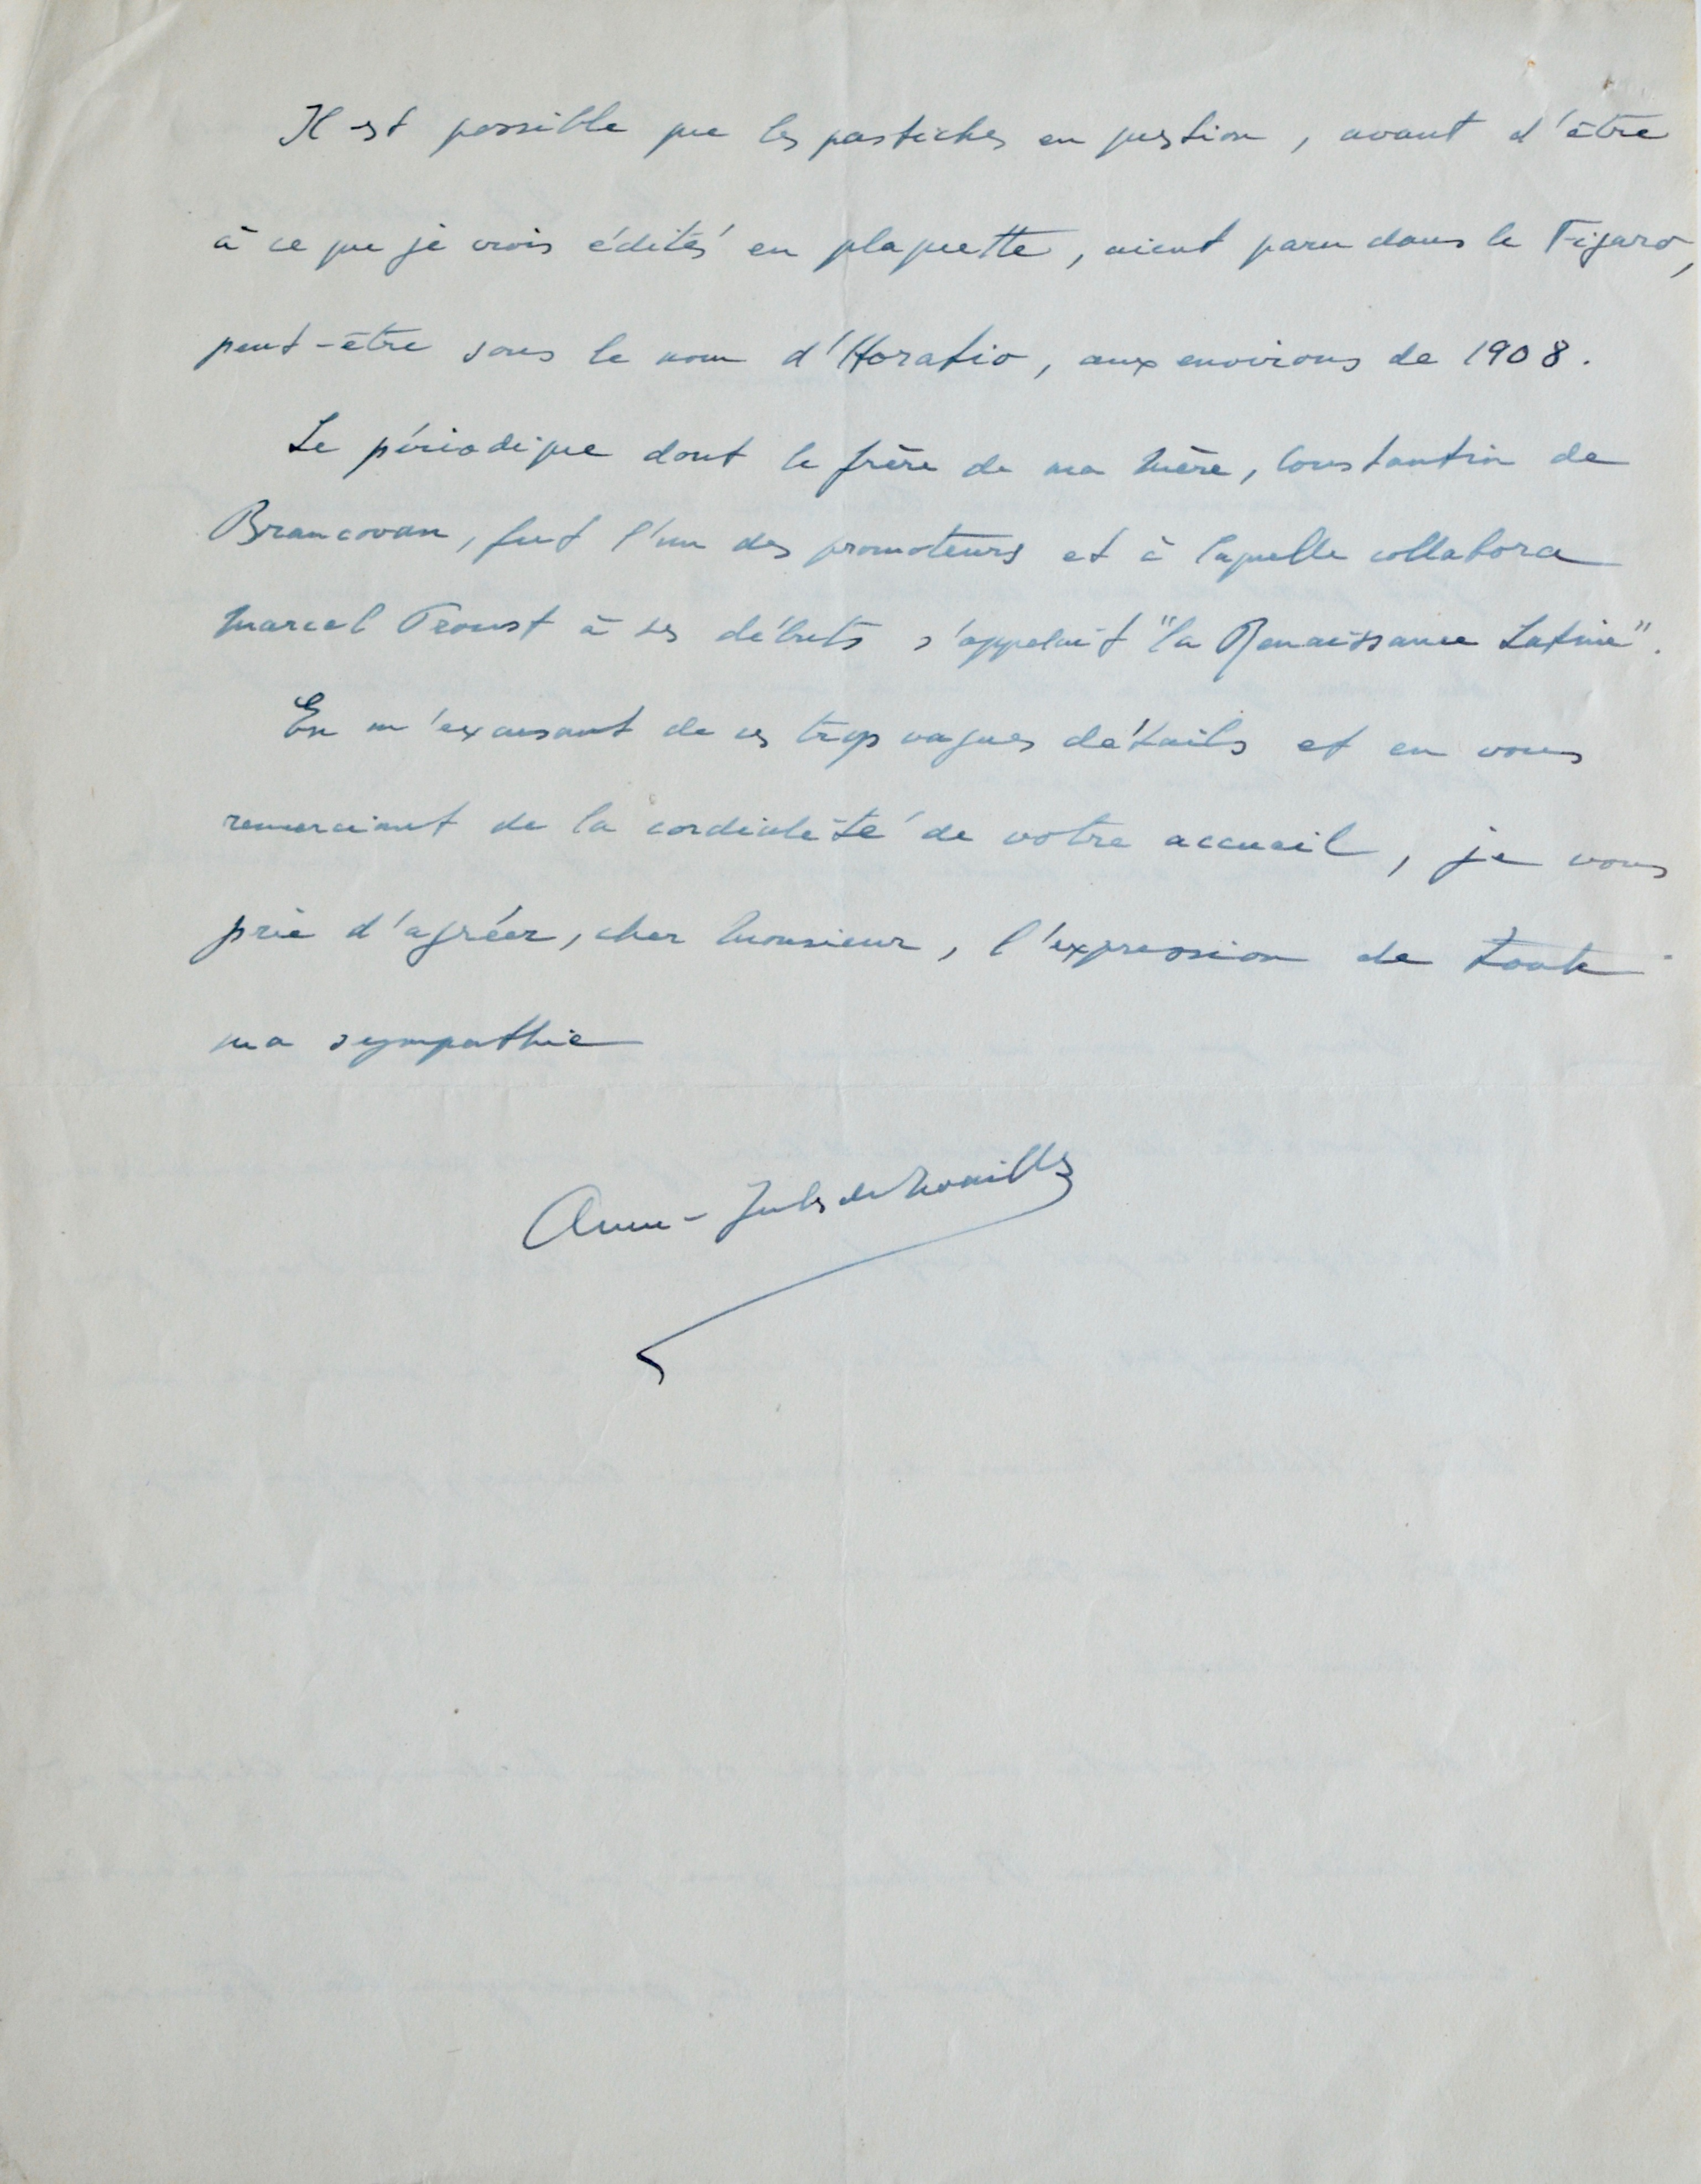 Il est possible que les pastiches en question, avant d'être
à ce que je crois édités en plaquette, aient paru dans le Figaro,
peut-être sous le nom d'Horatio, aux environs de 1908.
Le périodique dont le frère de ma mère, Constantin de
Brancovan, fut l'un des promoteurs et à laquelle collabora
Marcel Proust à ses débuts s'appelait "la Renaissance Latine".
En m'excusant de ces trop vagues détails et en vous
remerciant de la cordialité de votre accueil, je vous
prie d'agréer, cher Monsieur, l'expression de toute
ma sympathie
Anne-Jules de Noailles